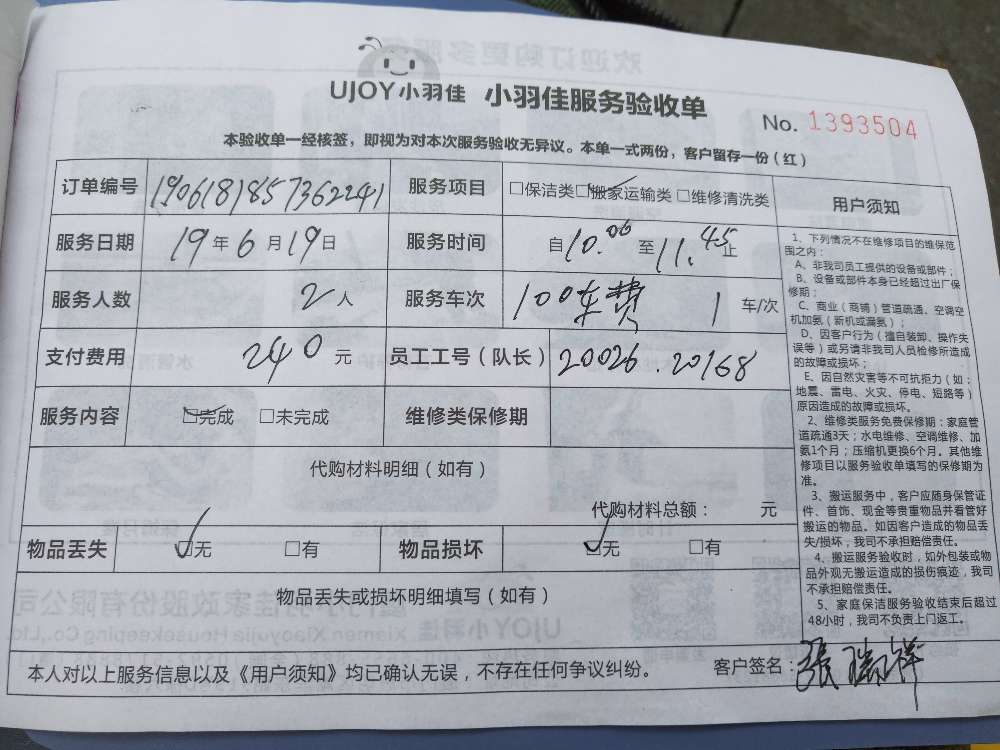 UJOY小羽佳 小羽佳服务验收单
No. 1393504
本验收单一经核签，即视为对本次服务验收无异议。本单一式两份，客户留存一份（红）
订单编号 1906181857362241 服务项目 □保洁类 □搬家运输类 □维修清洗类
服务日期 19年6月19日 服务时间 自10.00至11.45止
服务人数 2人 服务车次 100车费 1 车/次
支付费用 240元 员工工号（队长） 20026.20168
服务内容 □完成 □未完成 维修类保修期
代购材料明细（如有）
代购材料总额： 元
物品丢失 □无 □有 物品损坏 □无 □有
物品丢失或损坏明细填写（如有）
本人对以上服务信息以及《用户须知》均已确认无误，不存在任何争议纠纷。 客户签名：张瑞祥
用户须知
1、下列情况不在维修项目的维保范
围之内：
A、非我司员工提供的设备或部件；
B、设备或部件本身已经超过出厂保
修期；
C、商业（商铺）管道疏通、空调空
机加氨（新机或漏氨）；
D、因客户行为（擅自装卸、操作失
误等）或另请非我司人员检修所造成
的故障或损坏；
E、因自然灾害等不可抗拒力（如：
地震、雷电、火灾、停电、短路等）
原因造成的故障或损坏。
2、维修类服务免费保修期：家庭管
道疏通3天；水电维修、空调维修、加
氨1个月；压缩机更换6个月。其他维
修项目以服务验收单填写的保修期为
准。
3、搬运服务中，客户应随身保管证
件、首饰、现金等贵重物品并看管好
搬运的物品。如因客户造成的物品丢
失/损坏，我司不承担赔偿责任。
4、搬运服务验收时，如外包装或物
品外观无搬运造成的损伤痕迹，我司
不承担赔偿责任。
5、家庭保洁服务验收结束后超过
48小时，我司不负责上门返工。